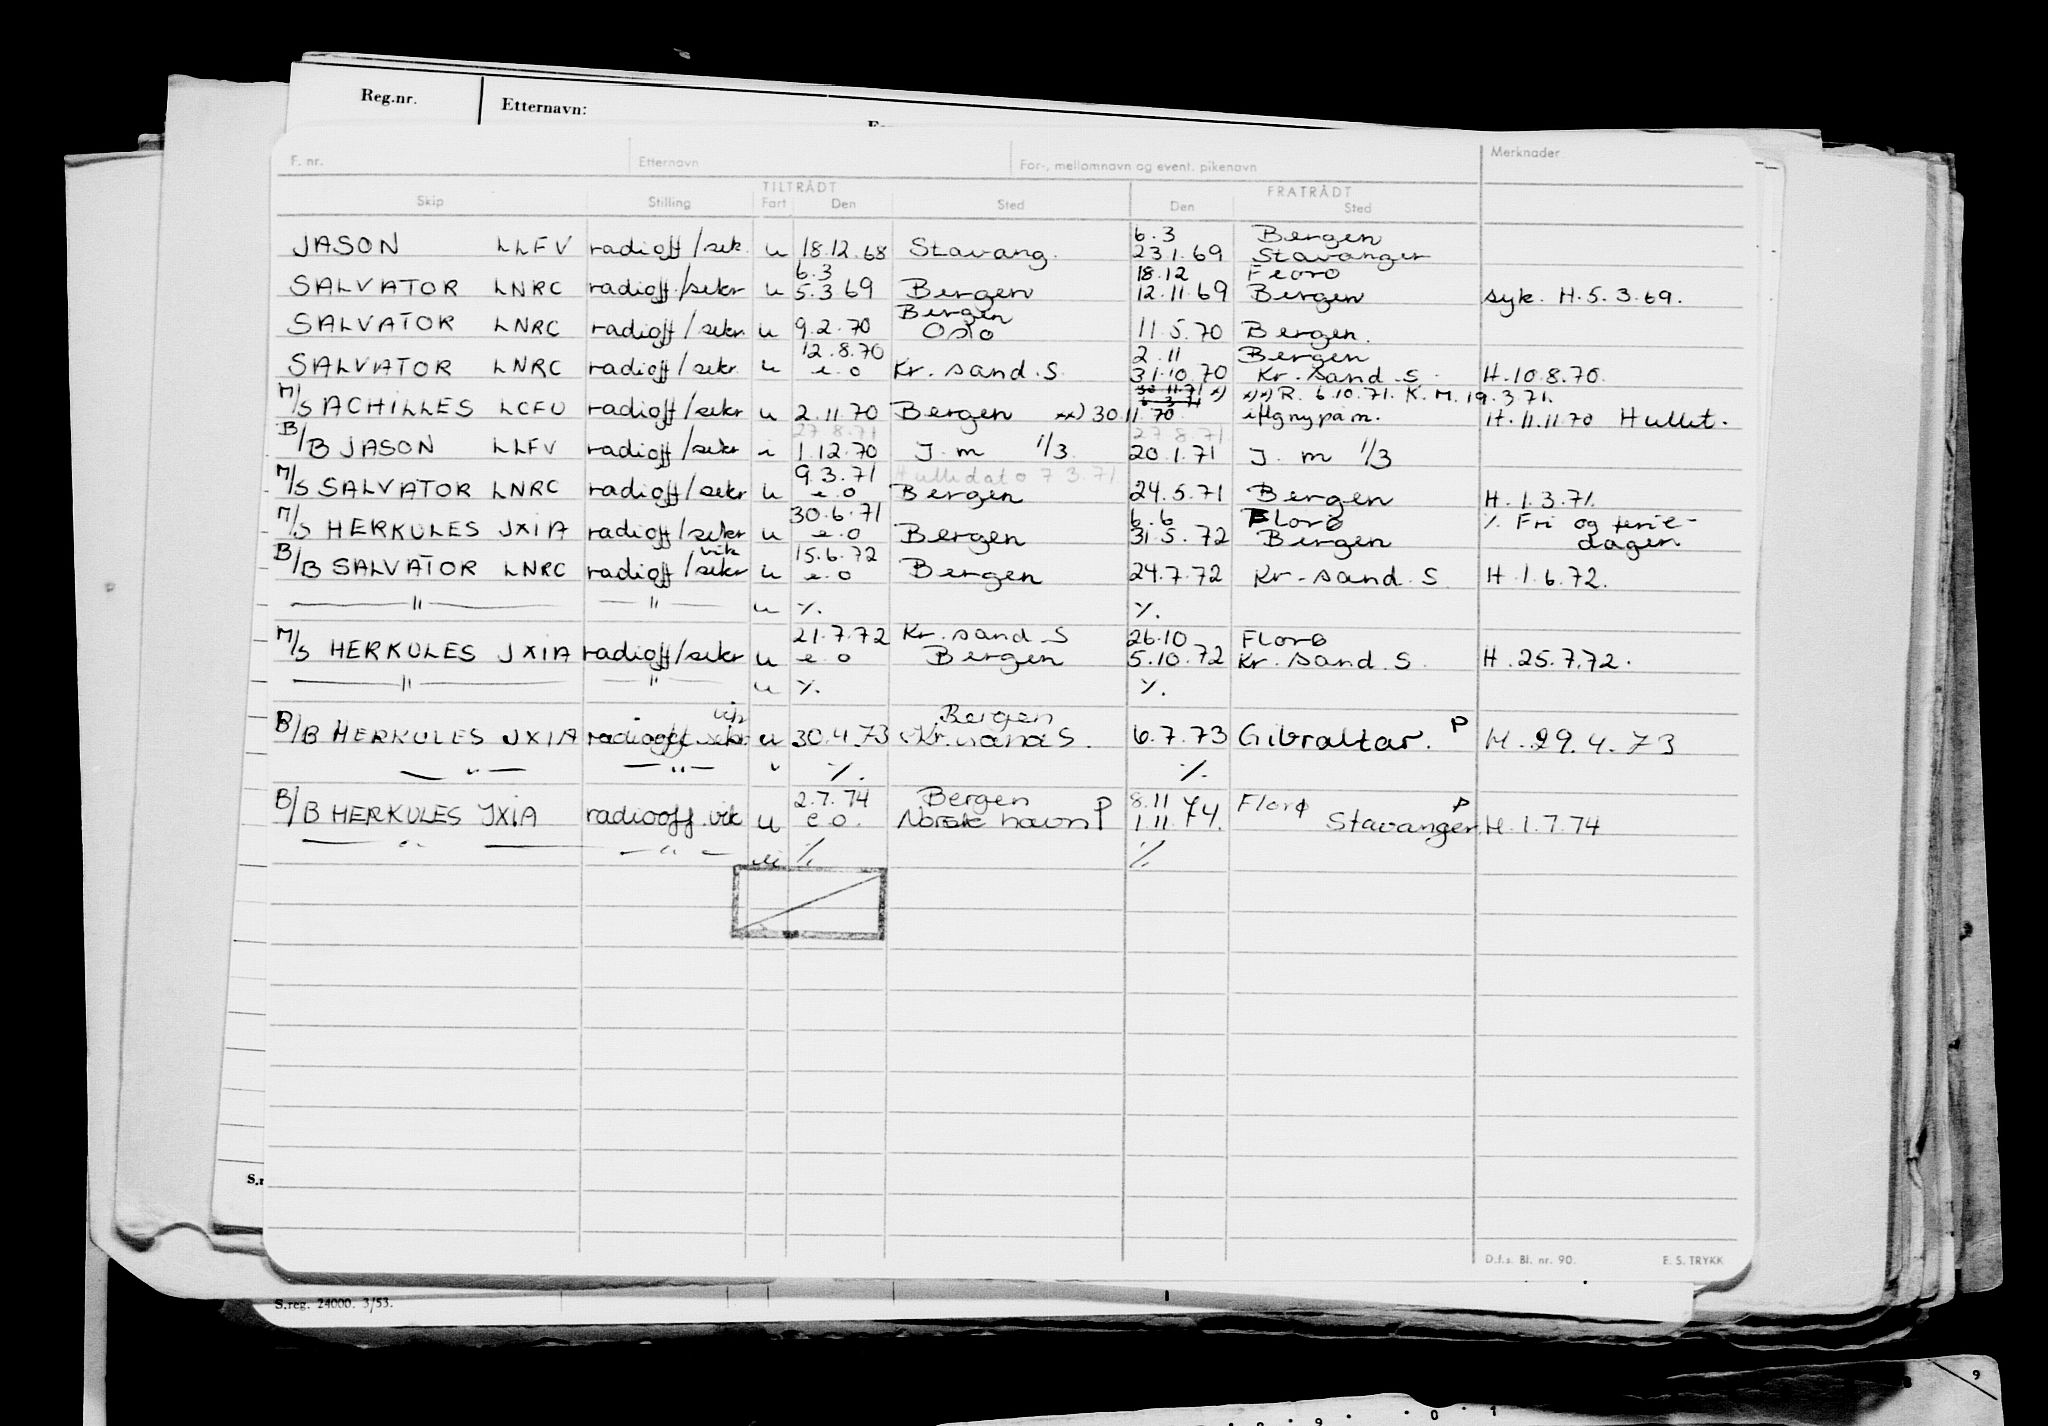 Reg.nr. Etternavn:
F. nr. Etternavn For-, mellomnavn og event. pikenavn Merknader
TILTRÅDT FRATRÅDT
Skip Stilling Fart Den Sted Den Sted
6.3 Bergen
JASON LLFV radioff/sek. u 18.12.68 Stavang. 23.1.69 Stavanger
6.3 18.12 Florø
SALVATOR LNRC radioff/sekr u 5.3 69 Bergen 12.11.69 Bergen syk. H.5.3.69.
Bergen
SALVATOR LNRC radioff/sekr u 9.2.70 Oslo 11.5.70 Bergen.
12.8.70 2.11 Bergen
SALVATOR LNRC radioff/sekr u e.o Kr.sand.S 31.10.70 Kr.sand.S. H.10.8.70.
30.11.71 x) x)x) R. 6.10.71. K.M.19.3.71.
M/S ACHILLES LCFU radioff/sekr u 2.11.70 Bergen xx) 30.11.70. iflg ny påm. H.11.11.70 Hullet.
27.8.71 27 8.71
B/B JASON LLFV radioff/sekr i 1.12.70 J.m 1/3. 20.1.71 J.m 1/3
9.3.71 Hulledato 7 3.71
M/S SALVATOR LNRC radioff/sekr u e.o Bergen 24.5.71 Bergen H.1.3.71.
30.6.71 6.6 Florø % Fri og ferie-
M/S HERKULES JXIA radioff/sekr u e.o Bergen 31.5.72 Bergen dagen
vik 15.6.72
B/B SALVATOR LNRC radioff/sekr u e.o Bergen 24.7.72 Kr.sand.S H.1.6.72.
—"— —"— u %. %.
21.7.72 Kr.sand.S 26.10 Florø
M/S HERKULES JXIA radioff/sekr u e.o Bergen 5.10.72 Kr.sand.S. H.25.7.72.
—"— —"— u %. %.
vik Bergen
B/B HERKULES JXIA radiooff sekr. u 30.4.73 Kr.sand S. 6.7.73 Gibraltar. P H.29.4.73
—"— —"— " %. %.
2.7.74 Bergen 8.11 Florø P
B/B HERKULES JXIA radiooff.vik u e.o. Norsk havn P 1.11.74. Stavanger H.1.7.74
—"— —"— %. %.
S.r
D.f.s. Bl. nr. 90. E. S. TRYKK
S.reg. 24000. 3/53.
9
9 . . 0 . 1